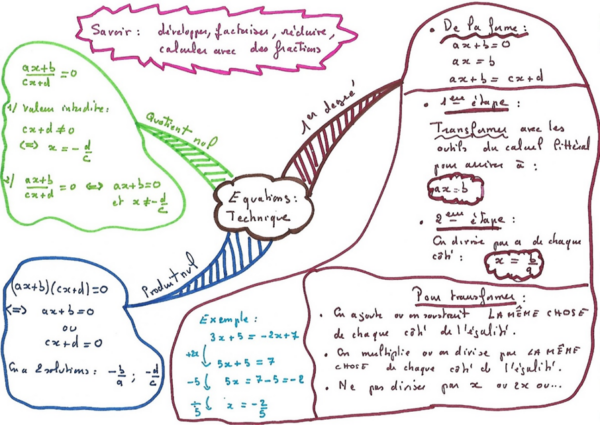 Savoir : développer, factoriser, réduire,
calculer avec des fractions
ax+b/cx+d = 0
1/ Valeur interdite:
cx+d ≠ 0
<=> x = -d/c
2/ ax+b/cx+d = 0 <=> ax+b=0
et x ≠ -d/c
Quotient nul
1er degré
Equations:
Technique
Produit nul
(ax+b)(cx+d)=0
<=> ax+b=0
ou
cx+d=0
On a 2 solutions: -b/a ; -d/c
• De la forme :
ax+b=0
ax=b
ax+b = cx+d
• 1ère étape :
Transformer avec les
outils du calcul littéral
pour arriver à :
ax=b
• 2ème étape :
On divise par a de chaque
côté : x = b/a
Pour transformer :
• On ajoute ou on soustrait LA MÊME CHOSE
de chaque côté de l'égalité.
• On multiplie ou on divise par LA MÊME
CHOSE de chaque côté de l'égalité.
• Ne pas diviser par x ou 2x ou...
Exemple :
3x+5 = -2x+7
+2x 5x+5 = 7
-5 5x = 7-5 = -2
÷5 x = -2/5